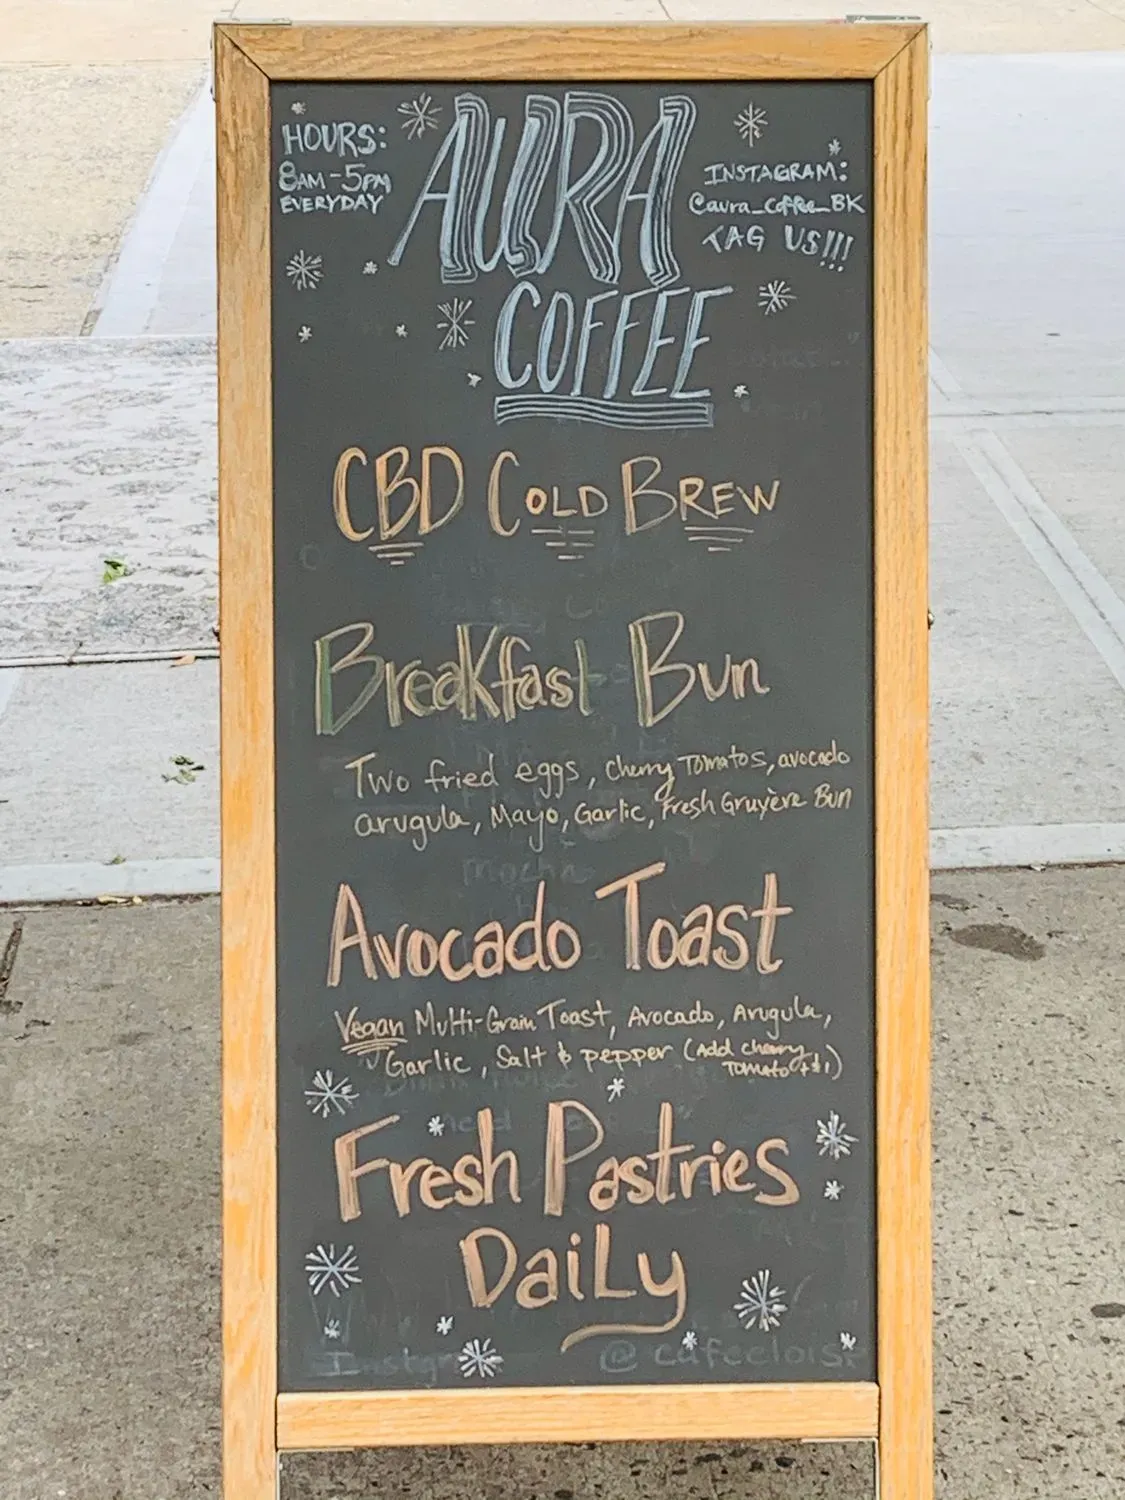 HOURS:
8AM-5PM
EVERYDAY
AURA
COFFEE
INSTAGRAM:
@aura_coffee_BK
TAG US!!!
CBD COLD BREW
Breakfast Bun
Two fried eggs, cherry Tomatos, avocado
arugula, Mayo, Garlic, Fresh Gruyère Bun
Avocado Toast
Vegan Multi-Grain Toast, Avocado, Arugula,
Garlic, Salt & pepper (Add cherry
Tomato +$1)
Fresh Pastries
DaiLy